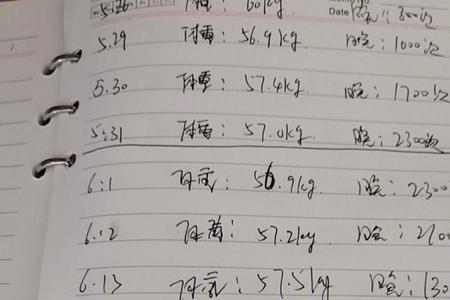 Date
60kg 300次
5.29 体重: 56.9kg 晚: 1000次
5.30 体重: 57.4kg 晚: 1700次
5.31 体重: 57.0kg 晚: 2300次
6.1 体重: 56.9kg 晚: 2300
6.12 体重: 57.2kg 晚:
6.13 体重: 57.5kg 晚: